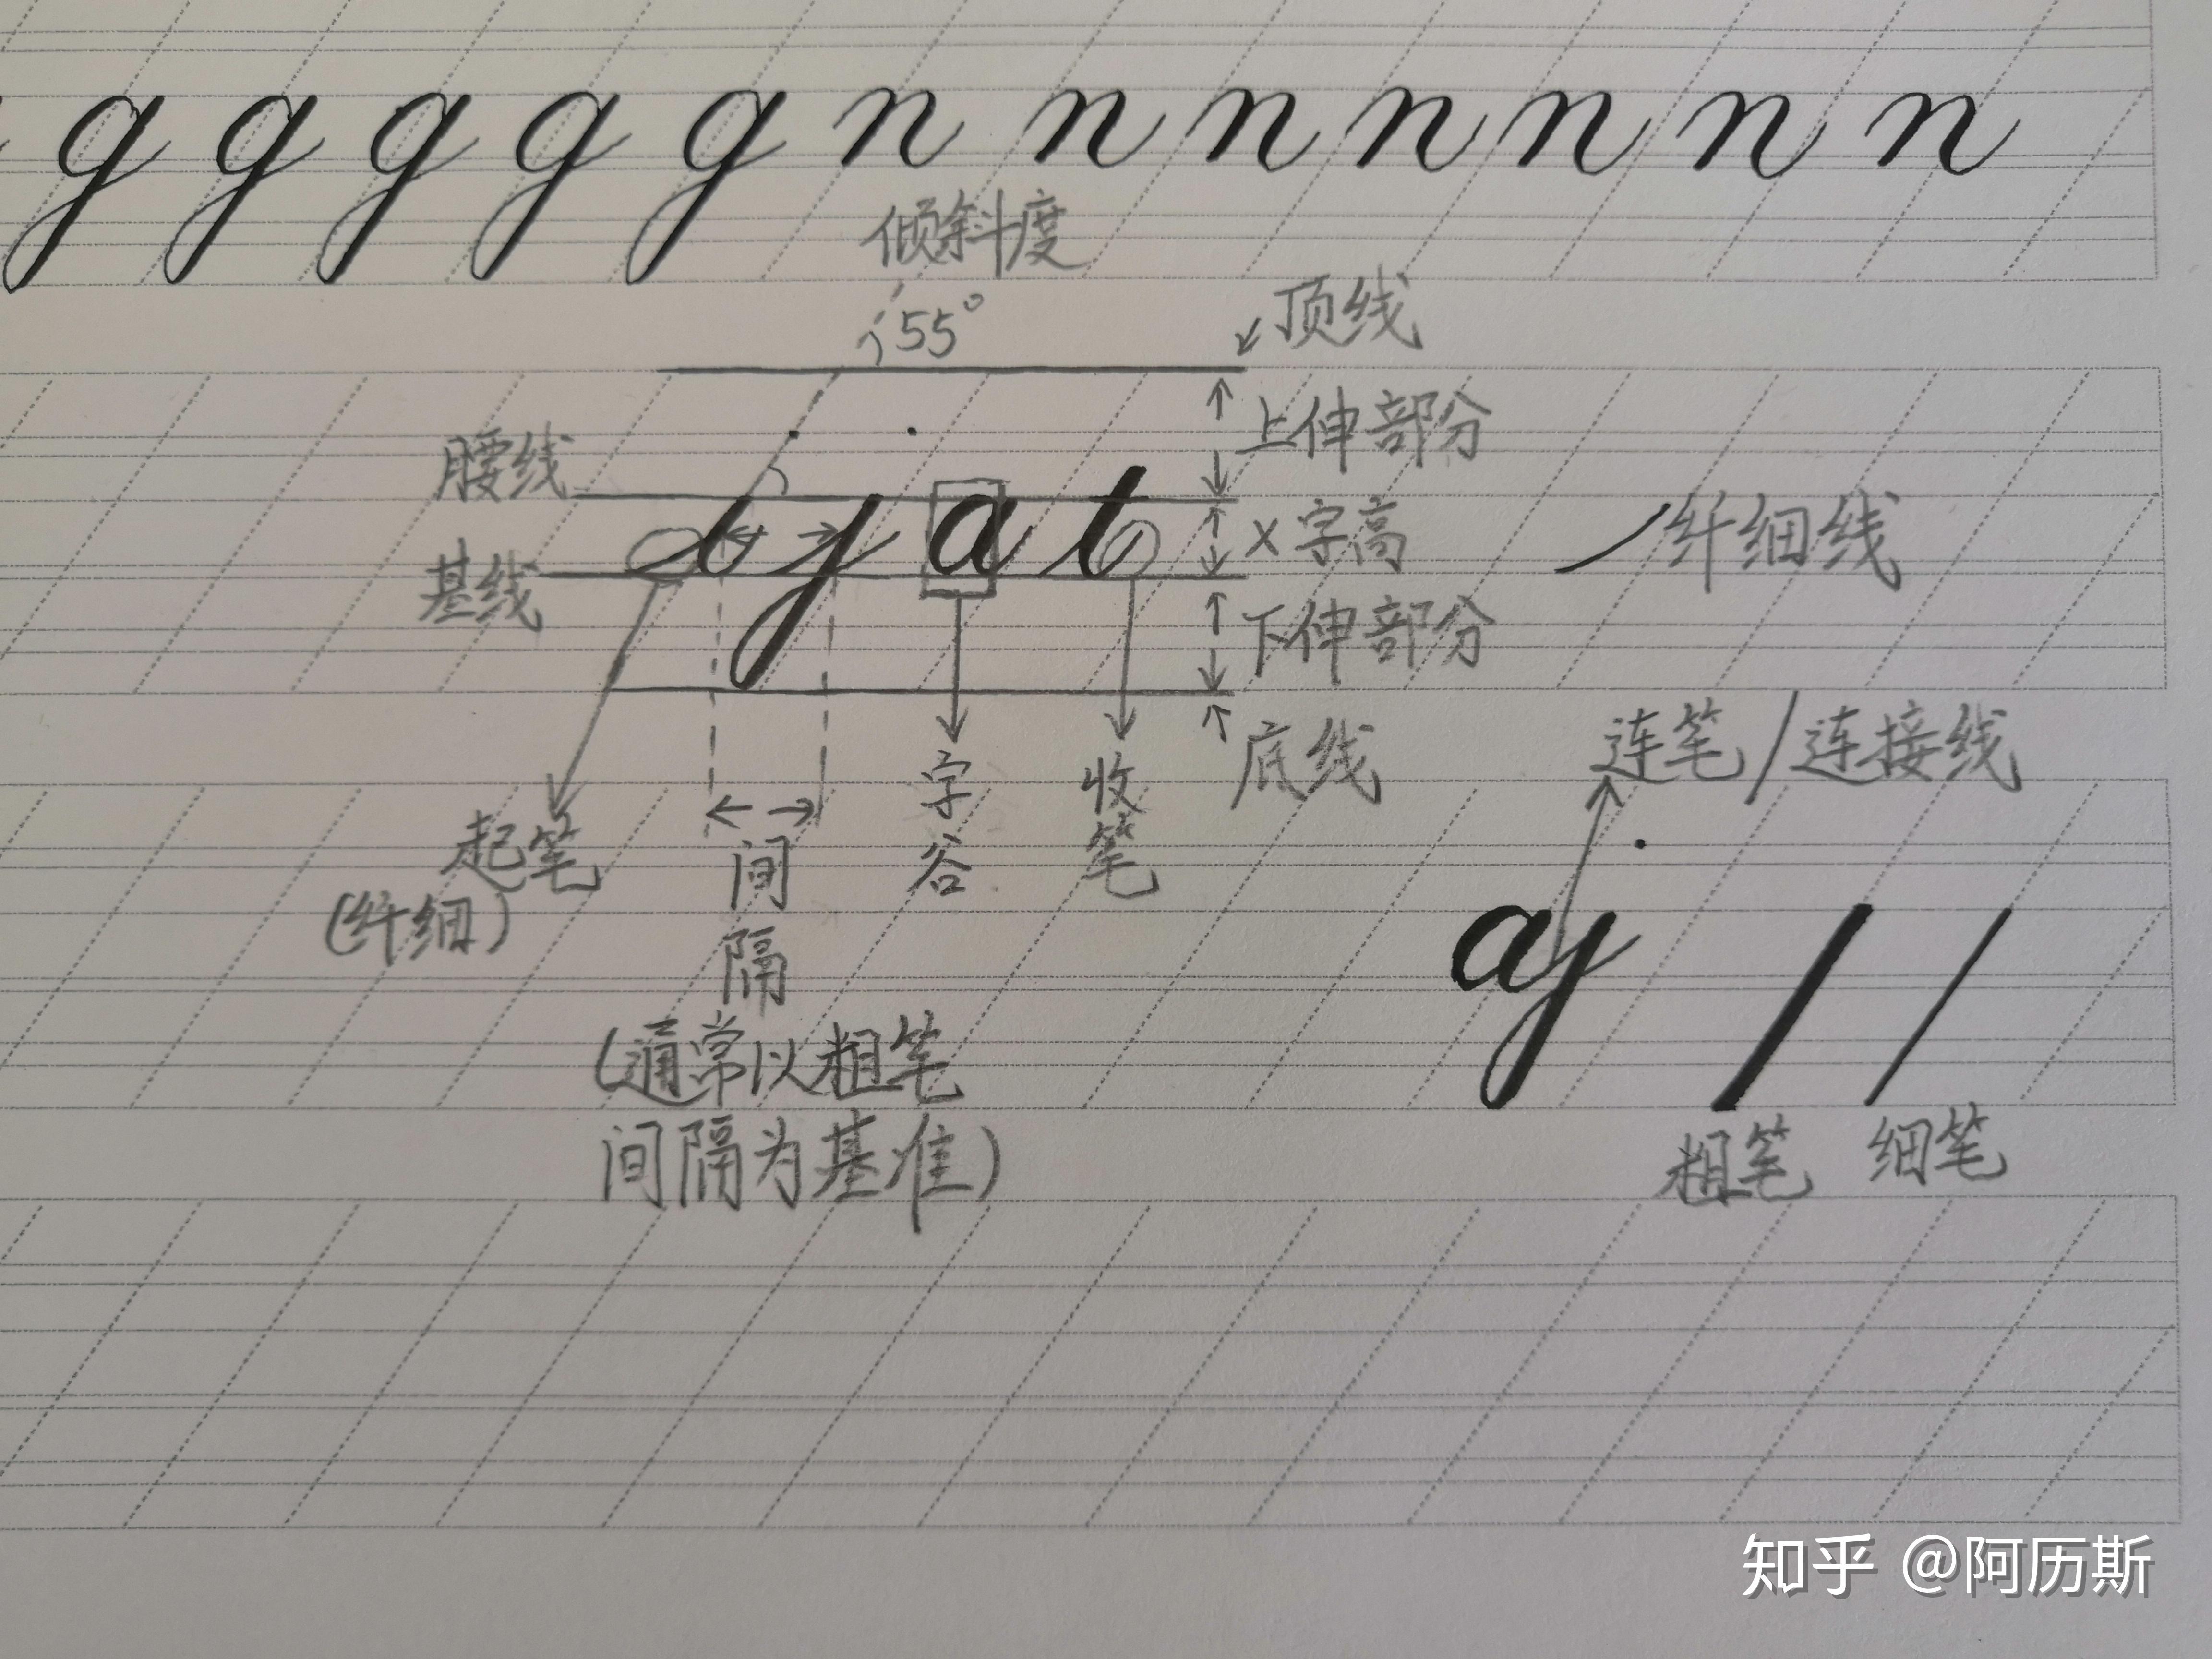 g g g g g n n n n n n n
倾斜度
55°
顶线
上伸部分
腰线
i j a t
x字高
纤细线
基线
下伸部分
底线
连笔/连接线
起笔
(纤细)
间隔
(通常以粗笔
间隔为基准)
字谷
收笔
aj
粗笔 细笔
知乎 @阿历斯